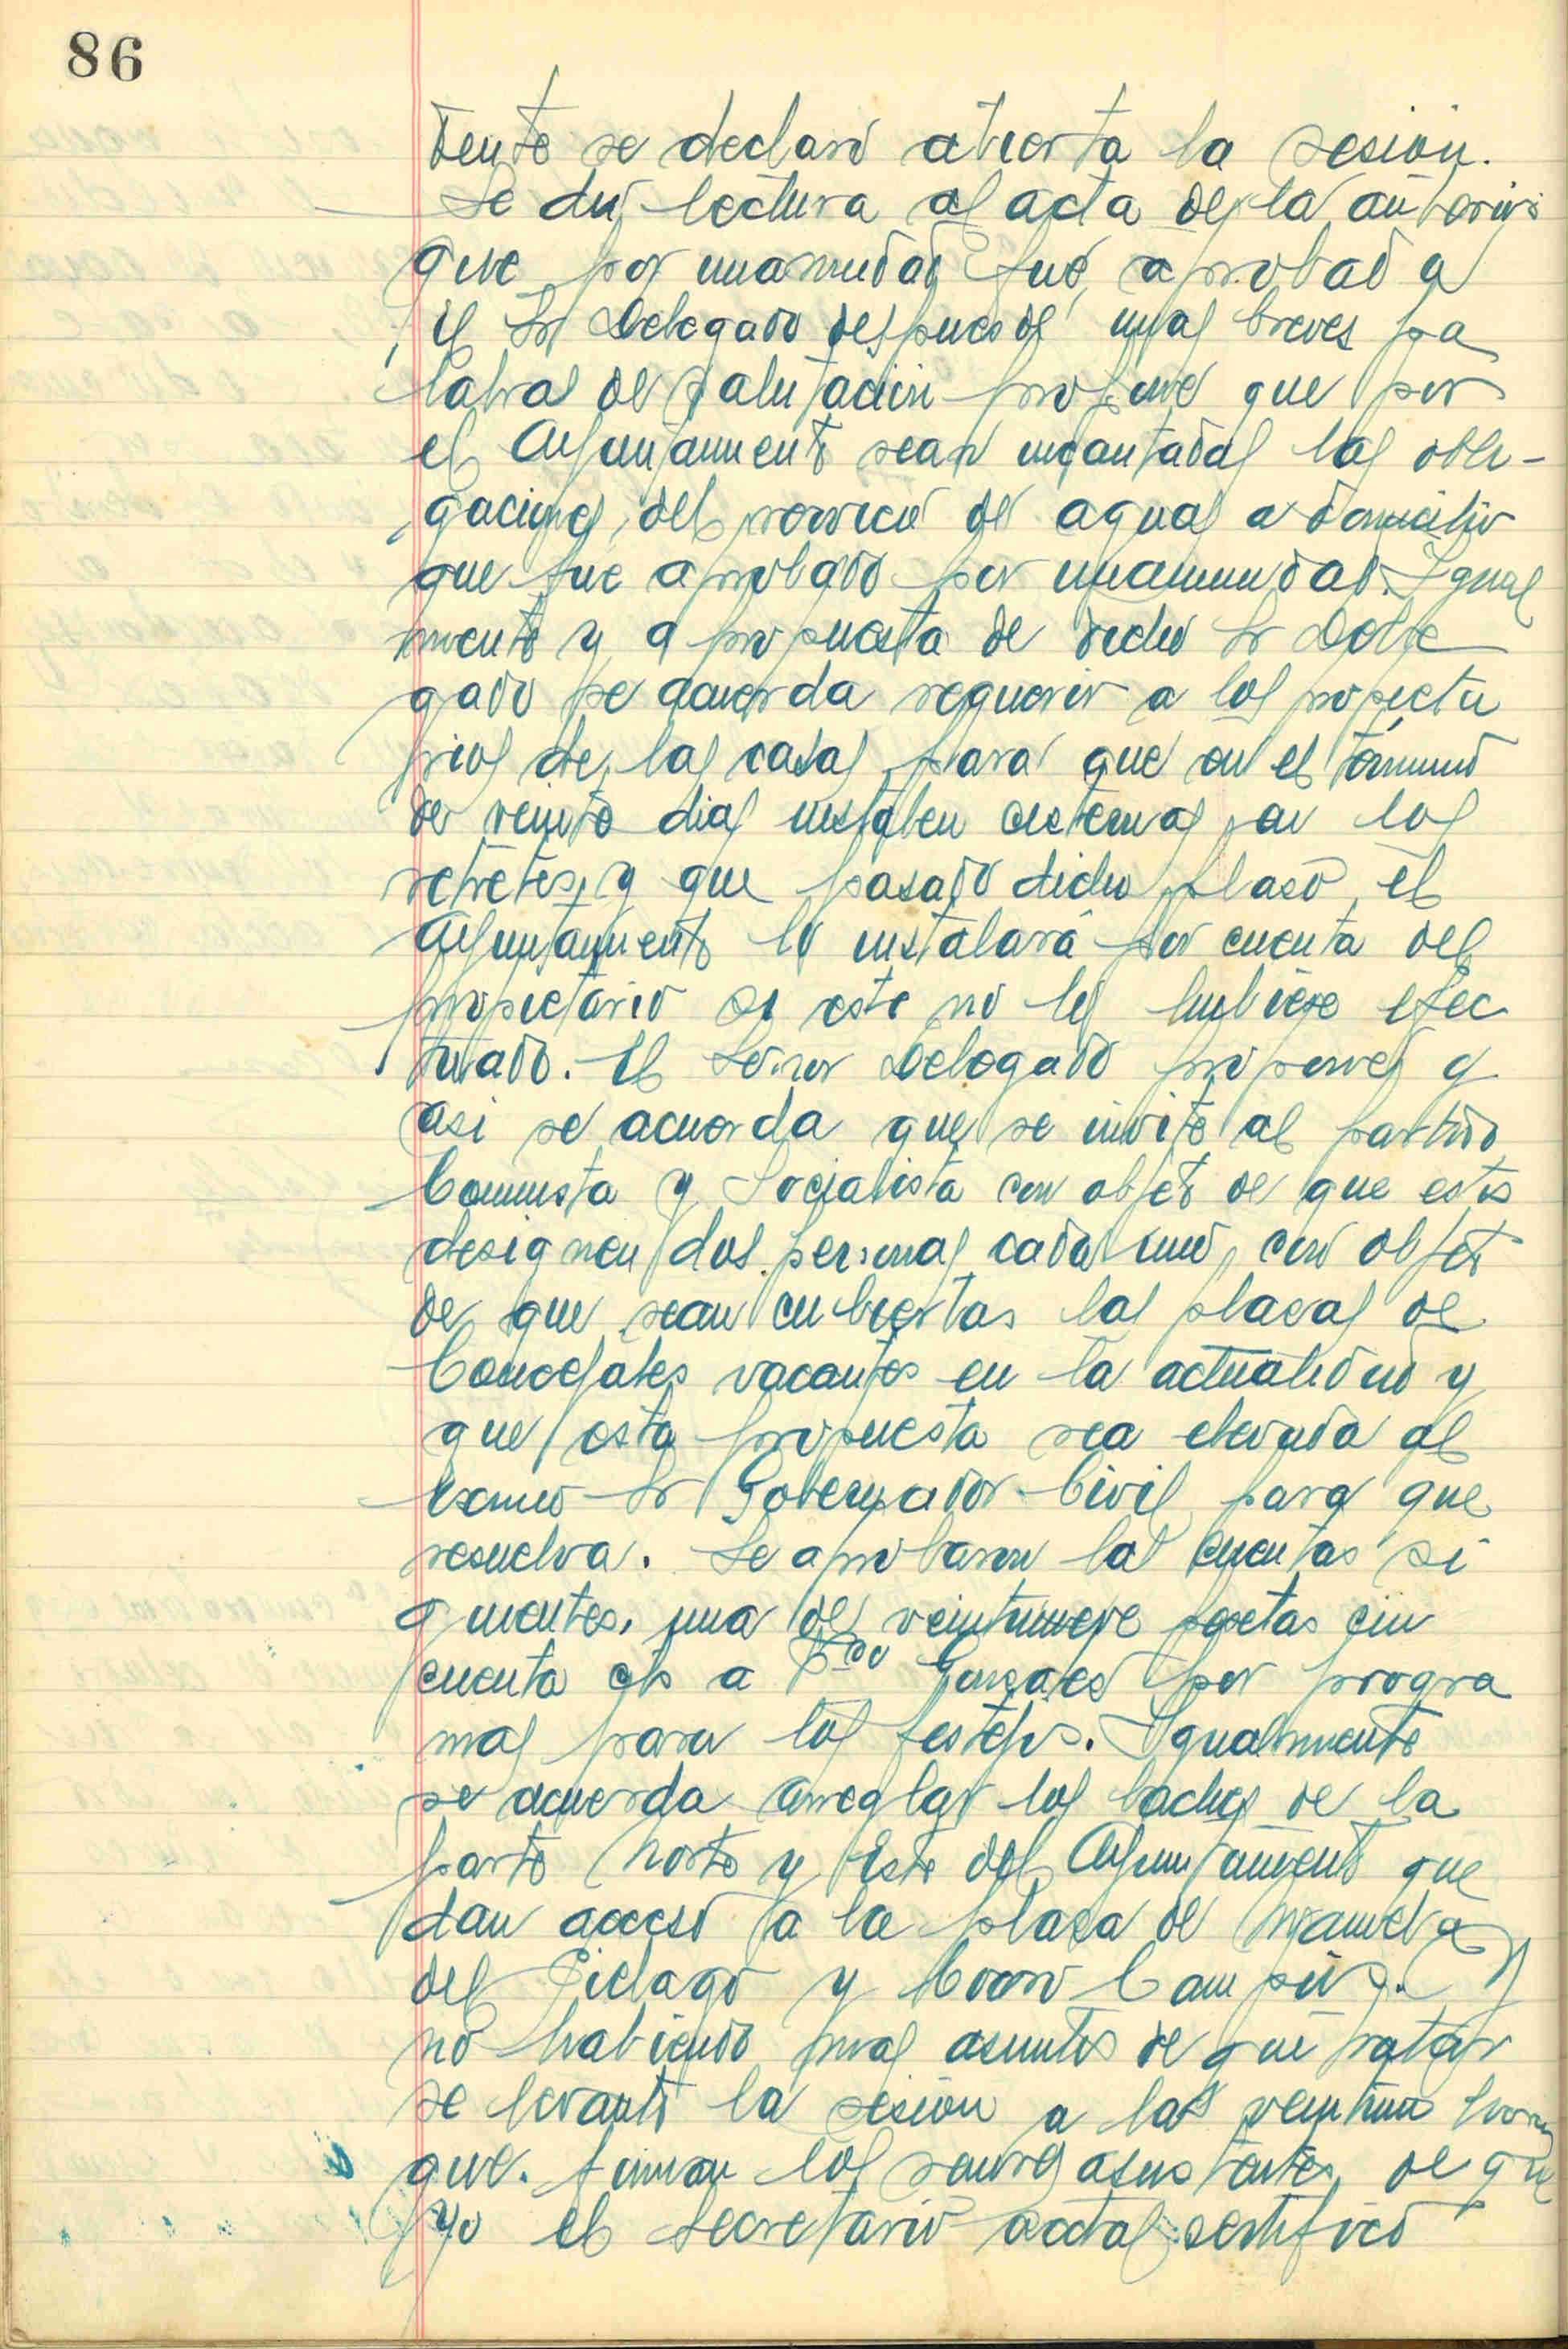 86
dente se declaró abierta la sesión.
Se dio lectura al acta de la anterior
que por unanimidad fué aprobada
El Sr Delegado despues de unas breves pa
labras de salutación propone que por
el Ayuntamiento sean incautadas las obli-
gaciones del servicio de aguas a domicilio
que fue aprobado por unanimidad. Igual
mente y a propuesta de dicho Sr Dele
gado se acuerda requerir a los propieta
rios de las casas para que en el término
de veinte dias instalen cisternas en los
retretes, y que pasado dicho plaso, el
Ayuntamiento lo instalará por cuenta del
propietario si este no lo hubiese efec
tuado. El Señor Delegado propone y
asi se acuerda que se invite al partido
Comunista y Socialista con objeto de que estos
designen dos personas cada uno, con objeto
de que sean cubiertas las plazas de
Concejales vacantes en la actualidad y
que esta propuesta sea elevada al
Excmo Sr Gobernador Civil para que
resuelva. Se aprobaron las cuentas si
guientes, una de veintinueve pesetas cin
cuenta cts a Gonzales por progra
mas para los festejos. Igualmente
se acuerda arreglar los baches de la
parte Norte y Este del Ayuntamiento que
dan acceso a la plaza de Manuel
del Piélago y Correo Campús. Y
no habiendo mas asuntos de que tratar
se levantó la sesión a las veintiuna horas
que firman los señores asistentes, de que
yo el Secretario acctal certifico